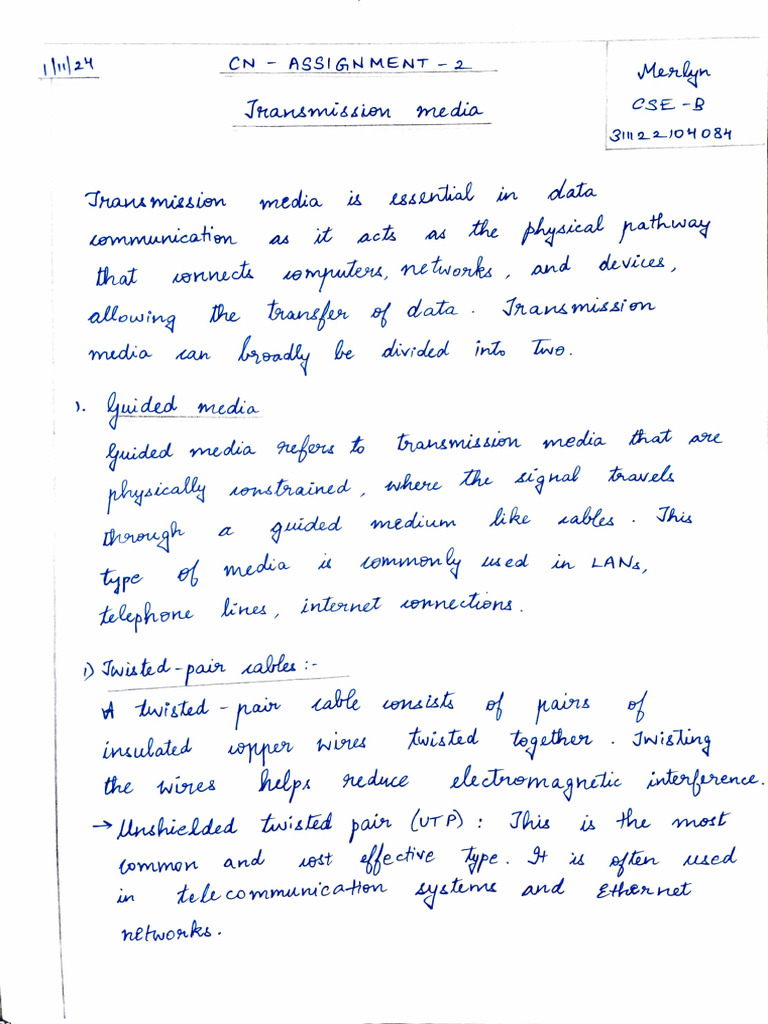 1/11/24
CN - ASSIGNMENT - 2
Merlyn
CSE - B
311122104084
Transmission media
Transmission media is essential in data
communication as it acts as the physical pathway
that connects computers, networks, and devices,
allowing the transfer of data. Transmission
media can broadly be divided into two.
1. Guided media
Guided media refers to transmission media that are
physically constrained, where the signal travels
through a guided medium like cables. This
type of media is commonly used in LANs,
telephone lines, internet connections.
1) Twisted-pair cables :-
A twisted-pair cable consists of pairs of
insulated copper wires twisted together. Twisting
the wires helps reduce electromagnetic interference.
→ Unshielded twisted pair (UTP) : This is the most
common and cost effective type. It is often used
in telecommunication systems and Ethernet
networks.